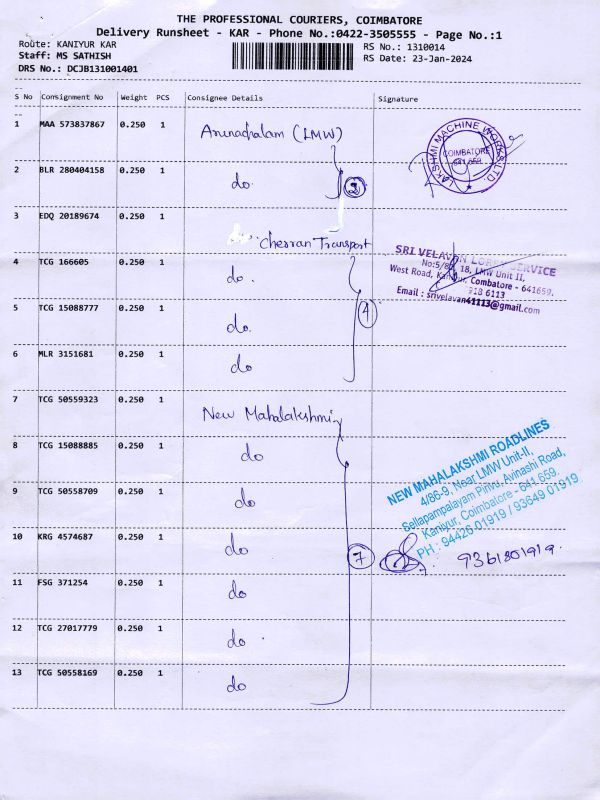 THE PROFESSIONAL COURIERS, COIMBATORE
Delivery Runsheet - KAR - Phone No.:0422-3505555 - Page No.:1
Route: KANIYUR KAR
Staff: MS SATHISH
DRS No.: DCJB131001401
RS No.: 1310014
RS Date: 23-Jan-2024
S No Consignment No Weight PCS Consignee Details Signature
1 MAA 573837867 0.250 1 Arunachalam (LMW)
LAKSHMI MACHINE WORKS LTD.
COIMBATORE
641 659
2 BLR 280404158 0.250 1 do.
3 EDQ 20189674 0.250 1 Cherran Transport
SRI VELAVAN LORRY SERVICE
18, LMW Unit II,
West Road, Coimbatore - 641659.
6113
Email : srivelavan41113@gmail.com
4 TCG 166605 0.250 1 do.
4
5 TCG 15088777 0.250 1 do.
6 MLR 3151681 0.250 1 do
7 TCG 50559323 0.250 1 New Mahalakshmi
8 TCG 15088885 0.250 1 do
NEW MAHALAKSHMI ROADLINES
4/86-9, Near LMW Unit-II,
Sellapampalayam Pirivu, Avinashi Road,
Kaniyur, Coimbatore - 641 659.
PH : 94426 01919 / 93649 01919
9 TCG 50558709 0.250 1 do
10 KRG 4574687 0.250 1 do
7
9361801919.
11 FSG 371254 0.250 1 do
12 TCG 27017779 0.250 1 do
13 TCG 50558169 0.250 1 do